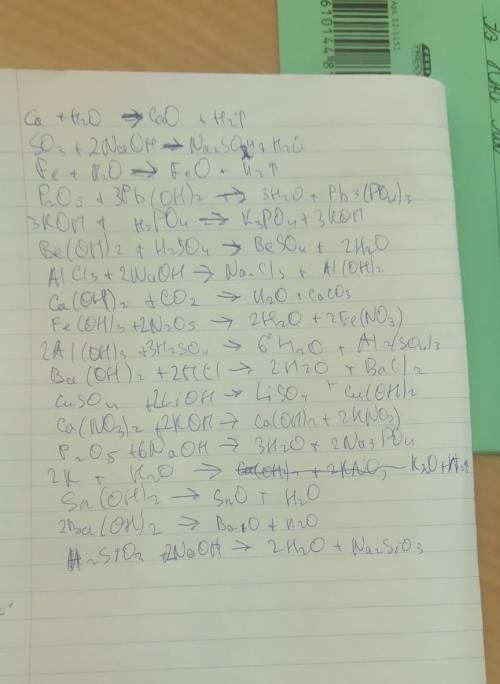 Арт. 12-1151
610144
Ca + H2O → CaO + H2↑
SO3 + 2NaOH → Na2SO4 + H2O
Fe + H2O → FeO + H2↑
P2O5 + 3Pb(OH)2 → 3H2O + Pb3(PO4)3
3KOH + H2PO4 → K3PO4 + 3KOH
Be(OH)2 + H2SO4 → BeSO4 + 2H2O
AlCl3 + 2NaOH → Na2Cl3 + Al(OH)2
Ca(OH)2 + CO2 → H2O + CaCO3
Fe(OH)3 + 2N2O5 → 2H2O + 2Fe(NO3)
2Al(OH)3 + 3H2SO4 → 6H2O + Al2(SO4)3
Ba(OH)2 + 2HCl → 2H2O + BaCl2
CuSO4 + 2LiOH → LiSO4 + Cu(OH)2
Ca(NO3)2 + 2KOH → Ca(OH)2 + 2KNO3)
P2O5 + 6NaOH → 3H2O + 2Na3PO4
2K + H2O → Ca(OH)2 + 2KNO3 K2O + H2↑
Sn(OH)2 → SnO + H2O
2Ba(OH)2 → BaO + H2O
H2SiO3 + 2NaOH → 2H2O + Na2SiO3